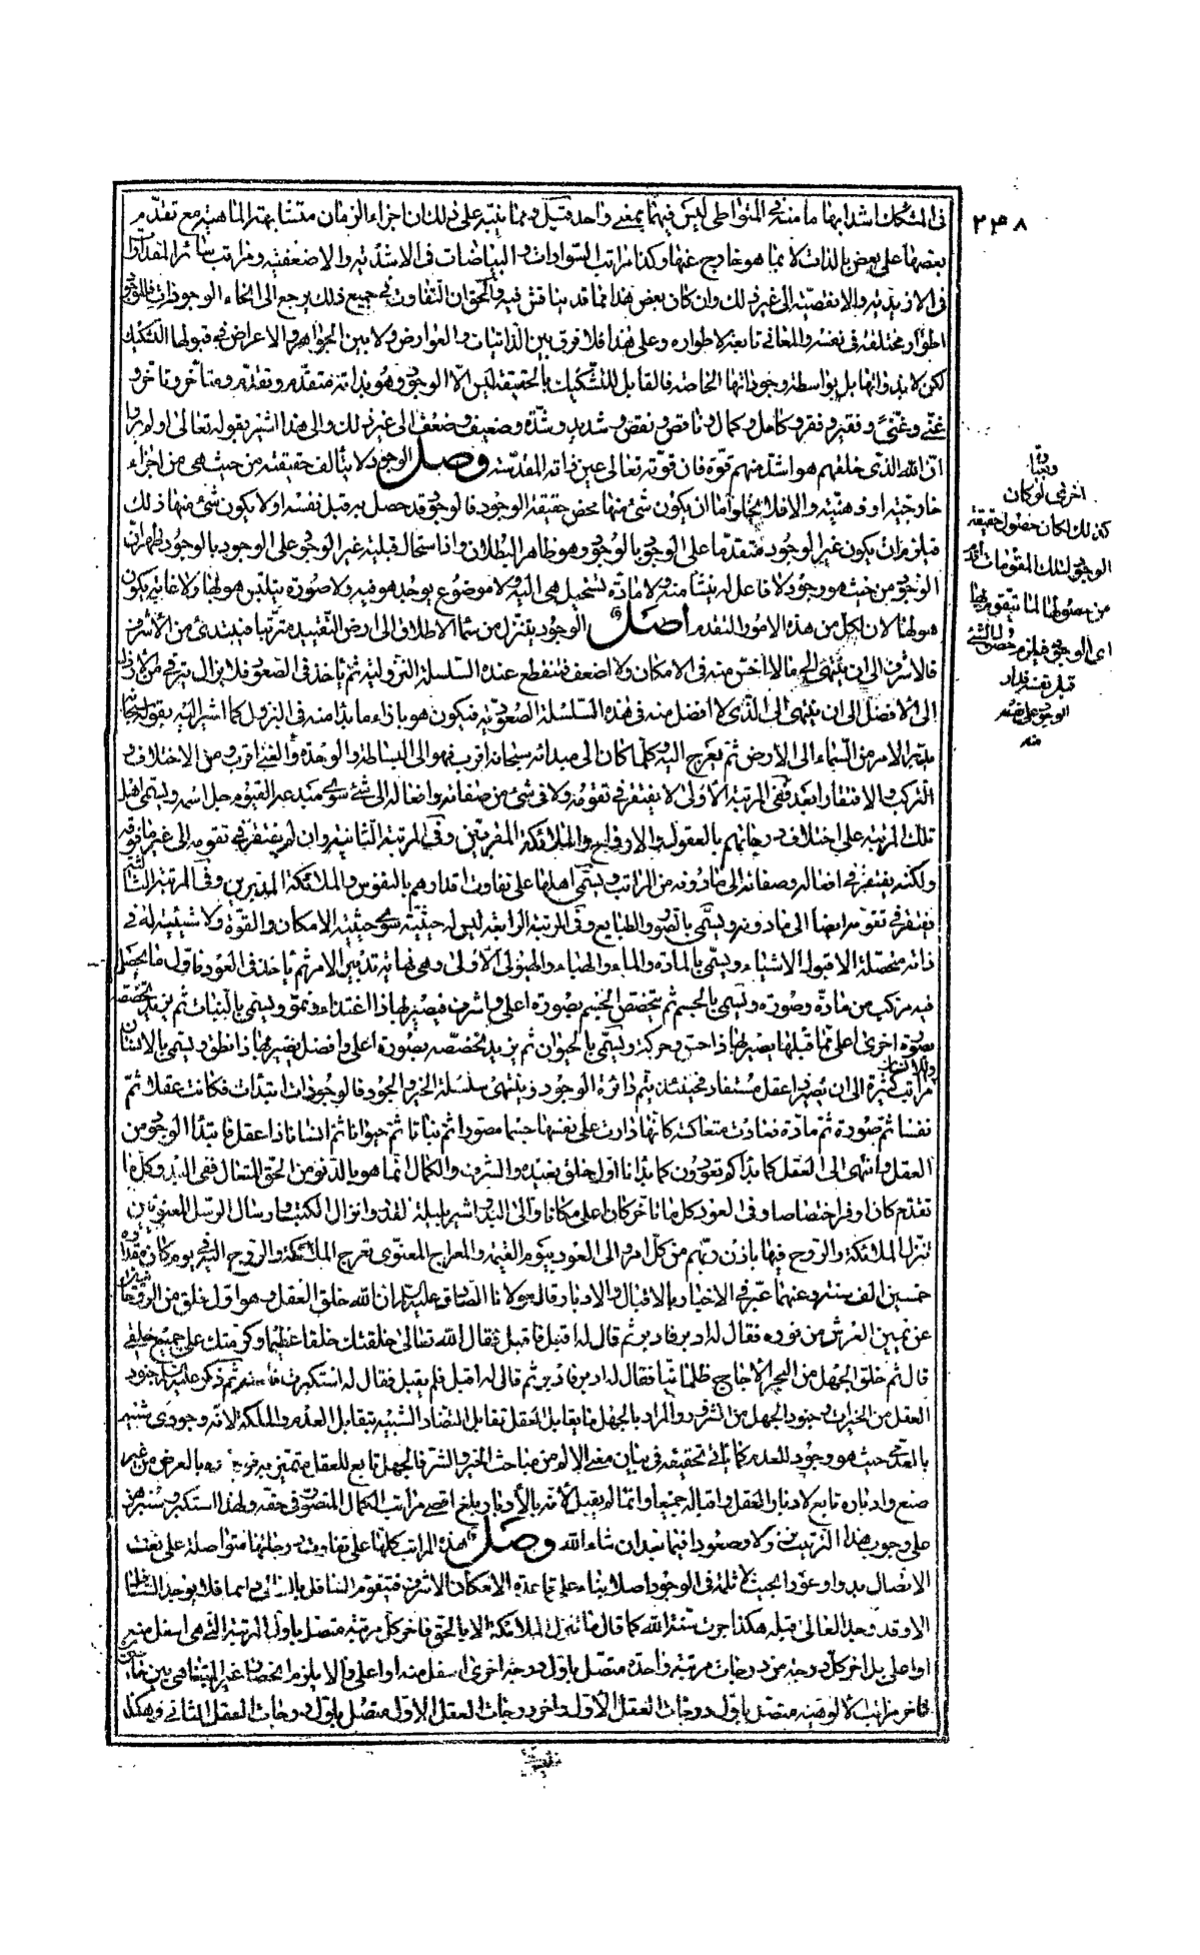 ٢٣٨
فى المشكك اشد ابهاما منه فى المتواطى ليس فيهما بمعنى واحد قيل ومما ينبّه على ذلك ان اجزاء الزمان متشابهة الماهية مع تقدّم
بعضها على بعض بالذات لا بما هو خارج عنها وكذا مراتب السوادات والبياضات فى الاشدّية والاضعفية ومراتب سائر المقدارات
فى الازيدية والانقصيّة الى غير ذلك وان كان بعض هذا مما قد يناقش فيه والحق ان التفاوت فى جميع ذلك يرجع الى انحاء الوجودات فللوجود
اطوار مختلفة فى نفسه والمعانى تابعة لاطواره وعلى هذا فلا فرق بين الذاتيات والعوارض ولا بين الجواهر والاعراض فى قبولها التشكيك
لكن لا بذواتها بل بواسطة وجوداتها الخاصة فالقابل للتشكيك بالحقيقة ليس الّا الوجود وهو بذاته متقدّم وتقدّم ومتأخّر وتأخّر و
غنىّ وغنىً وفقير وفقر وكامل وكمال وناقص ونقص وشديد وشدّة وضعيف وضعف الى غير ذلك والى هذا اشير بقوله تعالى اولم يروا
انّ الله الذى خلقهم هو اشدّ منهم قوّة فان قوّته تعالى عين ذاته المقدسّة وصل الوجود لا يتألف حقيقته من حيث هى من اجزاء
خارجيّة او ذهنيّة والا فلا يخلو اما ان يكون شئ منها محض حقيقة الوجود فالوجود قد حصل به قبل نفسه او لا يكون شئ منها ذلك
فيلزم ان يكون غير الوجود متقدّما على الوجود بالوجود وهو ظاهر البطلان واذا استحال قبليّة غير الوجود على الوجود بالوجود ظهر ان
الوجود من حيث هو وجود لا فاعل له ينشأ منه ولا مادّة يستحيل هى اليه ولا موضوع يوجد هو فيه ولا صورة يتلبّس هو بها ولا غاية يكون
هو لها لان لكل من هذه الامور التقدم اصل الوجود يتنزل من سماء الاطلاق الى ارض التقييد مترتبا فيبتدئ من الاشرف
فالاشرف الى ان ينتهى الى ما لا اخسّ منه فى الامكان ولا اضعف فتنقطع عنده السلسلة النزوليّة ثم يأخذ فى الصعود فلا يزال يترقى من الارذل
الى الافضل الى ان ينتهى الى الذى لا افضل منه فى هذه السلسلة الصعوديّة فيكون هو بازاء ما بدأ منه فى النزول كما اشير اليه بقوله سبحانه
يدبّر الامر من السّماء الى الارض ثم يعرج اليه وكلما كان الى مبدئه سبحانه اقرب فهو الى البساطة والوحدة والغنى اقرب ومن الاختلاف و
التركب والافتقار ابعد ففى المرتبة الاولى لا يفتقر فى تقوّمه ولا فى شئ من صفاته وافعاله الى شئ سوى مبدعه القيّوم جل اسمه ويسمى اهل
تلك المرتبة على اختلاف درجاتهم بالعقول والارواح والملائكة المقربين وفى المرتبة الثانية وان لم يفتقر فى تقومه الى غير ما فوقه
ولكنه يفتقر فى افعاله وصفاته الى ما دونه من المراتب ويسمّى اهلها على تفاوت اقدارهم بالنفوس والملائكة المدبرين وفى المرتبة الثالثة
يفتقر فى تقومه ايضا الى ما دونه ويسمّى بالصّور والطبايع وفى المرتبة الرابعة ليس له حيثيّة سوى حيثيّة الامكان والقوّة ولا شيئيّة له فى
ذاته متحصّلة الا قبول الاشياء ويسمّى بالمادة والماء والهباء والهيولى الاولى وهى نهاية تدبير الامر ثم يأخذ فى العود فاول ما يحصل
فيه مركب من مادّة وصورة ويسمى بالجسم ثم يتخصّص الجسم بصورة اعلى واشرف فيصير بها ذا اغتذاء ونموّ ويسمى بالنبات ثم يزيد تخصّصه
بصورة اخرى اعلى ممّا قبلها يصير بها ذا حسّ وحركة ويسمّى بالحيوان ثم يزيد تخصّصه بصورة اعلى وافضل يصير بها ذا نطق ويسمى بالانسان وللانسان
مراتب كثيرة الى ان يصير ذا عقل مستفاد فحينئذ يتم دائرة الوجود وينتهى سلسلة الخير والجود فالوجودات ابتدأت فكانت عقلا ثمّ
نفسا ثم صورة ثم مادّة فعادت متعاكسة كانّها دارت على نفسها جسما مصوّرا ثم نباتا ثم حيوانا ثم انسانا ذا عقل فابتدأ الوجود من
العقل وانتهى الى العقل كما بدأكم تعودون كما بدأنا اوّل خلق نعيده والشرف والكمال انّما هو بالدّنوّ من الحقّ المتعال ففى البدو كلّ ما
تقدّم كان اوفر اختصاصا وفى العود كل ما تأخّر كان اعلى مكانا والى البدو اشير بليلة القدر وانزال الكتب وارسال الرسل المعنويّين
تنزّل الملائكة والرّوح فيها باذن ربّهم من كلّ امر والى العود بيوم القيمة والمعراج المعنوى تعرج الملائكة والرّوح اليه فى يوم كان مقداره
خمسين الف سنة وعنهما عبّر فى الاخبار بالاقبال والادبار قال مولانا الصّادق عليه السلام ان الله خلق العقل وهو اوّل خلق من الروحانيين
عن يمين العرش من نوره فقال له ادبر فادبر ثم قال له اقبل فاقبل فقال الله تعالى خلقتك خلقا عظيما وكرّمتك على جميع خلقى
قال ثم خلق الجهل من البحر الاجاج ظلمانيّا فقال له ادبر فادبر ثم قال له اقبل فلم يقبل فقال له استكبرت فلعنه ثم ذكر عليه السلام جنود
العقل من الخيرات وجنود الجهل من الشرور والمراد بالجهل ما يقابل العقل تقابل التضاد الشبيه بتقابل العدم والملكة لانه وجودى شبيه
بالعدمى حيث هو وجود للعدم كما يأتى تحقيقه فى بيان معنى الالم من مباحث الخير والشرّ فالجهل تابع للعقل متميّز به موجود به بالعرض من غير
صنع وادباره تابع لادبار العقل واقباله جميعا وانما لم يقبل لانه بالادبار بلغ اقصى مراتب الكمال المتصوّر فى حقه ولهذا استكبر وسنبرهن
على وجوب هذا الترتيب نزولا وصعودا فيما بعد ان شاء الله وصل هذه المراتب كلّها على تفاوت درجاتها متواصلة على نعت
الاتصال بدوا وعودا بحيث لا ثلمة فى الوجود اصلا بناء على قاعدة الامكان الاشرف فيتقوّم السافل بالعالى دائما فلا يوجد السافل
الا وقد وجد العالى قبله هكذا جرت سنّة الله كما قال ما تنزل الملائكة الا بالحق فاخر كل مرتبة متصل باول المرتبة التى هى اسفل منه
او اعلى بل اخر كلّ درجة من درجات مرتبة واحدة متّصل باوّل درجة اخرى اسفل منه او اعلى والا يلزم انحصار غير المتناهى بين حاصرين
فاخر مراتب الالوهيّة متصل باوّل درجات العقل الاوّل واخر درجات العقل الاوّل متصل باول درجات العقل الثانى وهكذا
اخرى لو كان
كذلك لكان حصول حقيقة
الوجود لتلك المقومات اقدم
من حصولها لما يتقوم بها
اى الوجود فيلزم حصول الشئ
قبل نفسه فدار
الوجود على نفسه
منه